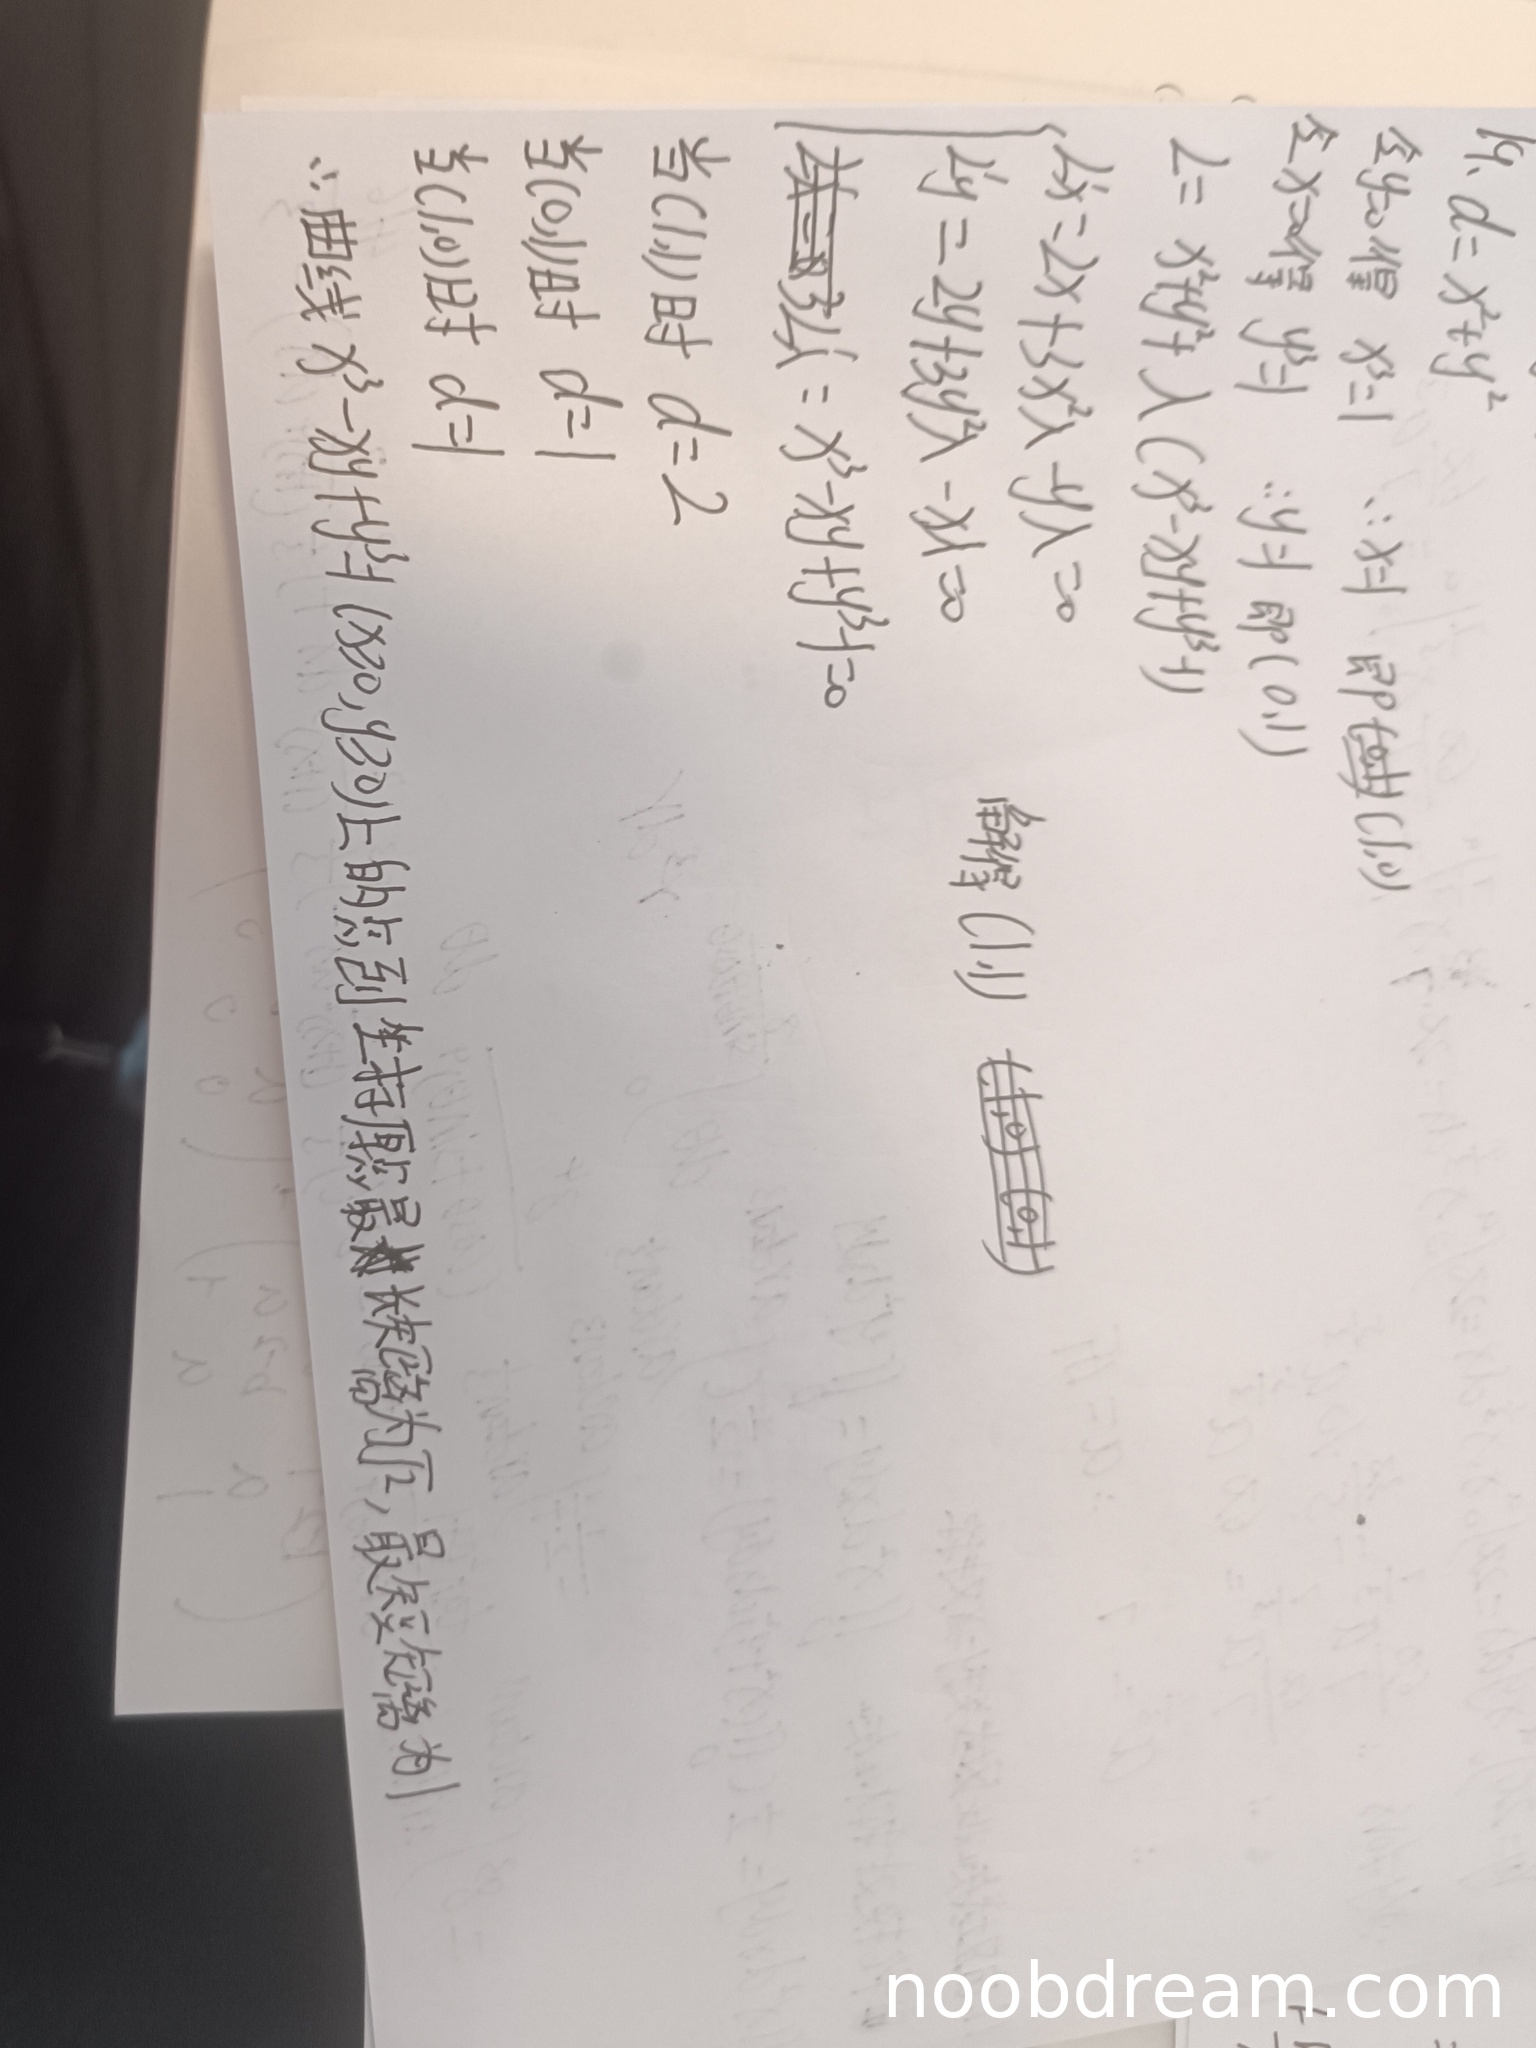 19. d = x²+y²
令y=0得 x³=1 ∴x=1 即(1,0)
令x=0得 y³=1 ∴y=1 即(0,1)
L = x²+y²+λ(x³-xy+y³-1)
L'x = 2x+3x²λ-yλ=0
L'y = 2y+3y²λ-xλ=0
L'λ = x³-xy+y³-1=0
解得(1,1)
当(1,1)时 d=2
当(0,1)时 d=1
当(1,0)时 d=1
∴曲线 x³-xy+y³=1 (x≥0,y≥0)上的点到坐标原点最长距离为√2,最短距离为1
noobdream.com